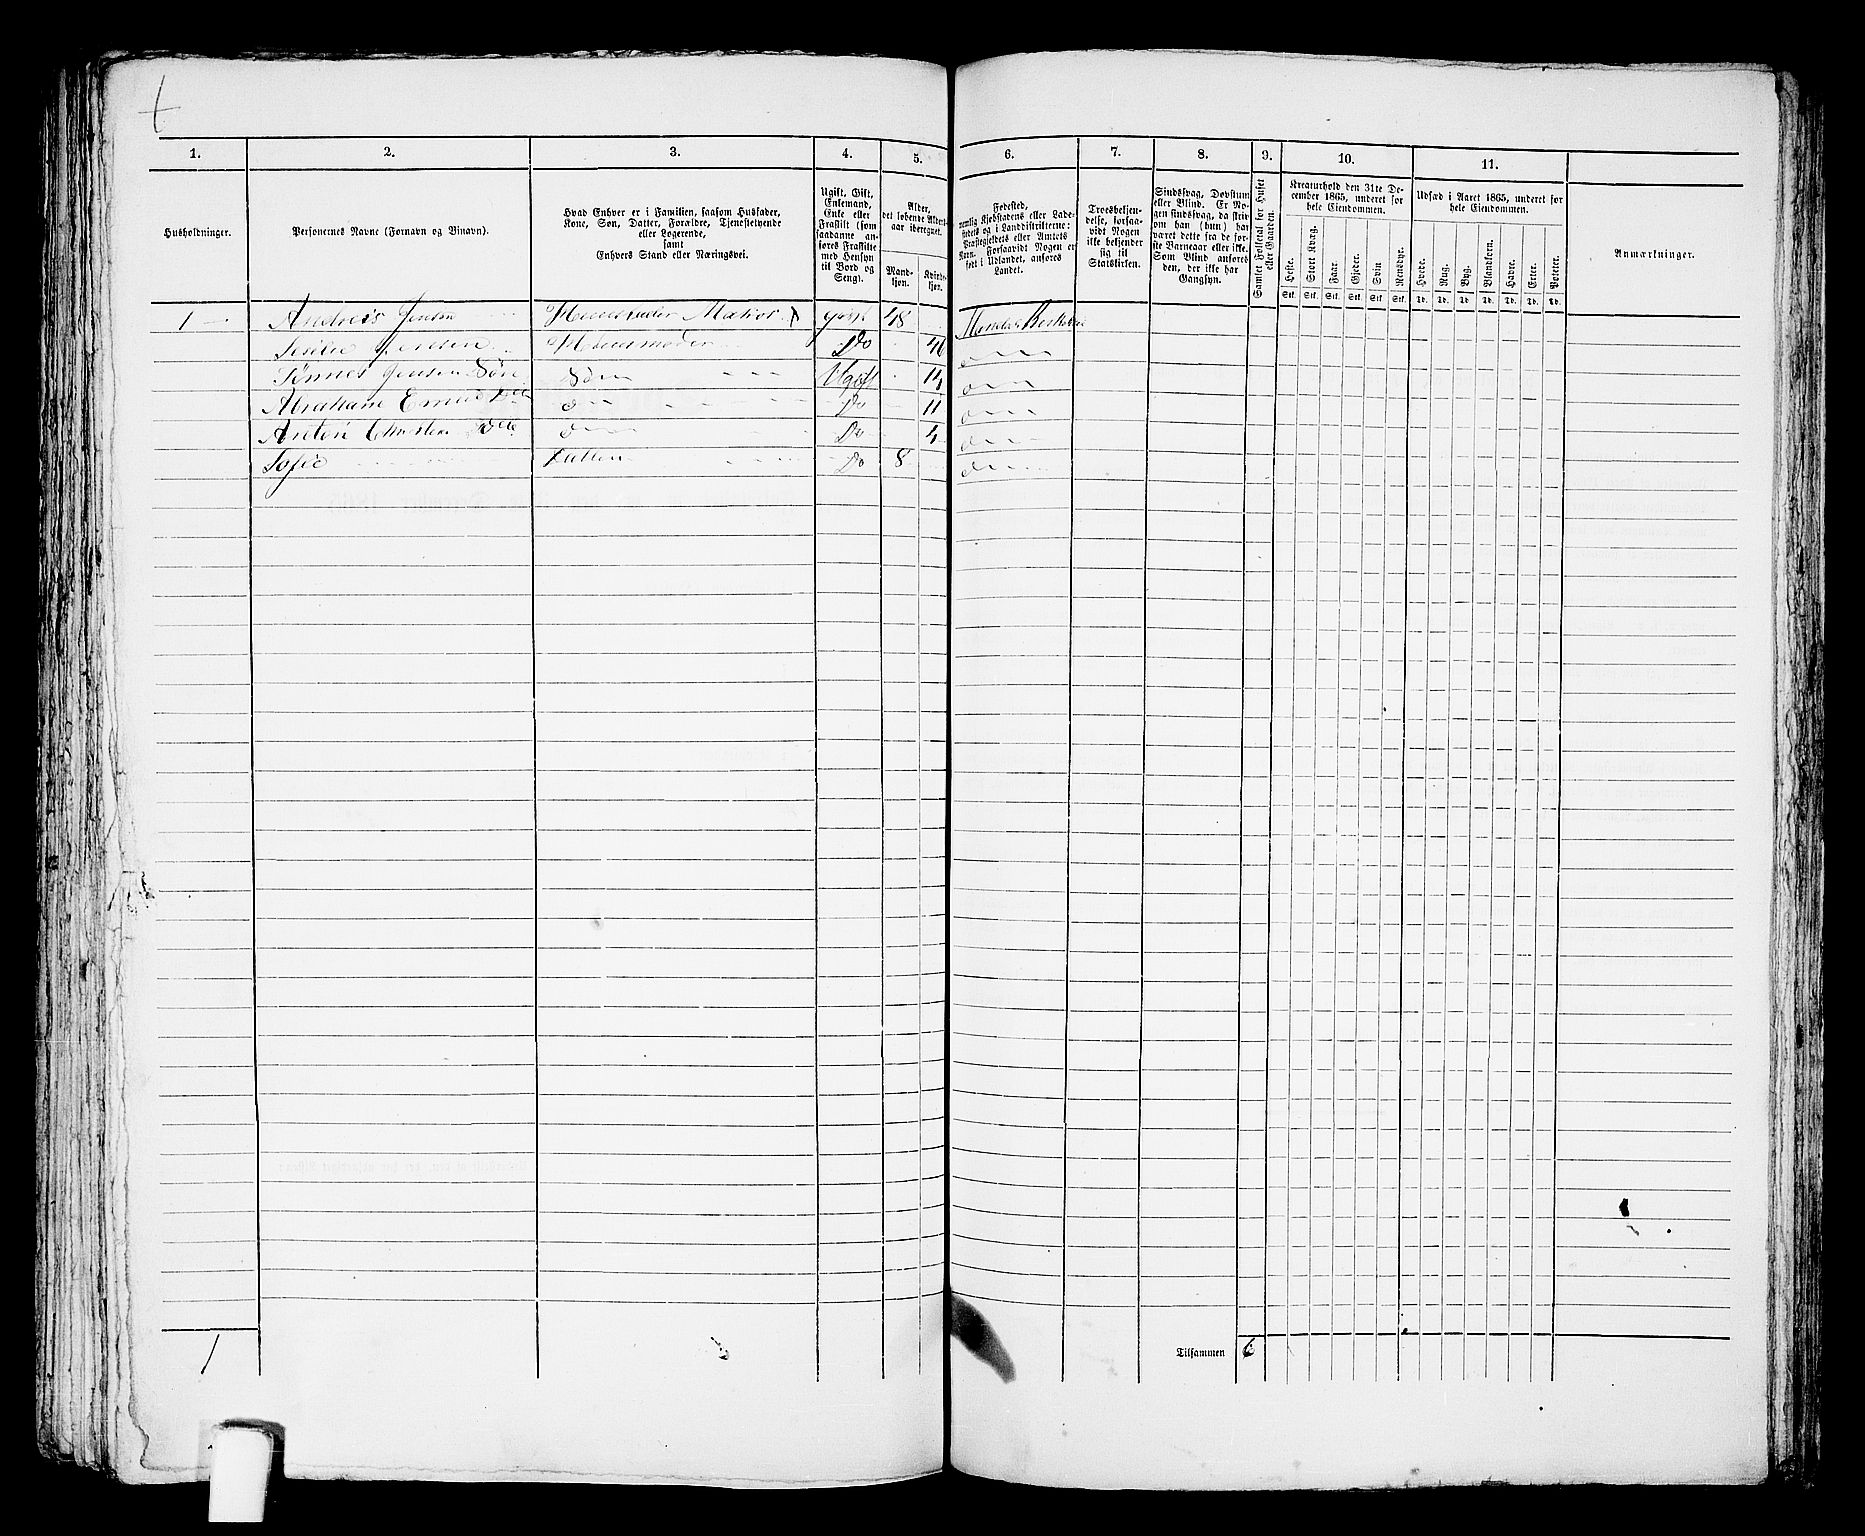 1. 2. 3. 4. 5. 6. 7. 8. 9. 10. 11.
Husholdninger.
Personernes Navne (Fornavn og Binavn).
Hvad Enhver er i Familien, saasom Husfader,
Kone, Søn, Datter, Forældre, Tjenestetyende
eller Logerende,
samt
Enhvers Stand eller Næringsvei.
Ugift, Gift,
Enkemand,
Enke eller
Fraskilt (som
saadanne an-
føres Fraskilte
med Hensyn
til Bord og
Seng).
Alder,
det løbende Alders-
aar iberegnet.
Mand-
kjøn.
Kvinde-
kjøn.
Fødested,
nemlig Kjøbstadens eller Lade-
stedets og i Landdistrikterne:
Præstegjeldets eller Amtets
Navn. Forsaavidt Nogen er
født i Udlandet, anføres
Landet.
Troesbekjen-
delse, forsaa-
vidt Nogen
ikke bekjender
sig til
Statskirken.
Sindssvag, Døvstum
eller Blind. Er No-
gen sindssvag, da skriv
om han (hun) har
været dette fra de før-
ste Barneaar eller ikke.
Som Blind anføres
den, der ikke har
Gangsyn.
Samlet Folketal for Huset
eller Gaarden.
Kreaturhold den 31te De-
cember 1865, underet for
hele Eiendommen.
Heste. Stort Kvæg. Faar. Gjeder. Svin Rensdyr.
Stk. Stk. Stk. Stk. Stk. Stk.
Udsæd i Aaret 1865, underet for
hele Eiendommen.
Hvede. Rug. Byg. Blandkorn. Havre. Erter. Poteter.
Td. Td. Td. Td. Td. Td. Td.
Anmærkninger.
1 Andreas Jensen Huusfader gift 48
Jensen Huusmoder Do
Tønnes Jensen Søn Søn Ugift 14
Abraham Do 11
Anton Do 4
Sofie Datter Do 8
1
Tilsammen 6